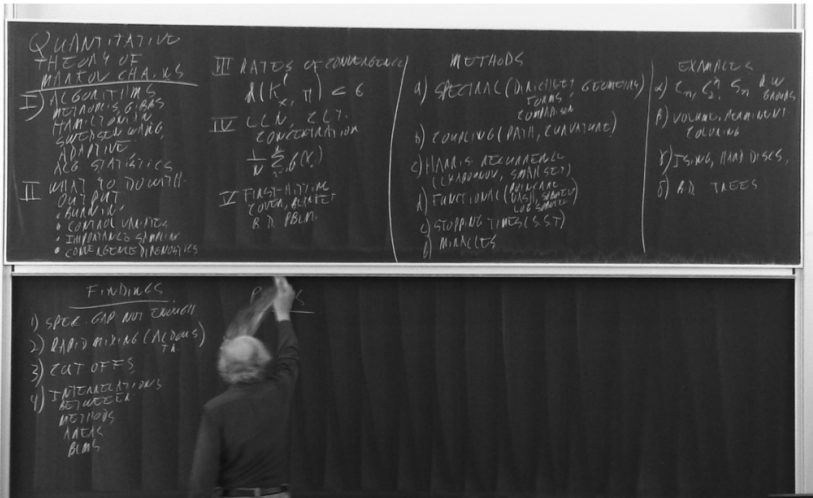 QUANTITATIVE
THEORY OF
MARKOV CHAINS
I) ALGORITHMS
METROPOLIS, GIBBS
HAMILTONIAN
SWENDSEN WANG,
ADAPTIVE
ALG STATISTICS
II WHAT TO DO WITH
OUTPUT
• BURN IN
• CONTROL VARIATES
• IMPORTANCE SAMPLING
• CONVERGENCE DIAGNOSTICS
III RATES OF CONVERGENCE
IV LLN, CLT,
CONCENTRATION
V FIRST HITTING
COVER, BLANKET
B.D. PBLM.
METHODS
a) SPECTRAL (DIRICHLET GEOMETRY)
FORMS
COMPARISON
b) COUPLING (PATH, CURVATURE)
c) HARRIS RECURRENCE
(LYAPUNOV, SMALL SET)
d) FUNCTIONAL (POINCARE
NASH, SOBOLEV
LOG SOBOLEV
e) STOPPING TIMES (SST)
MIRACLES
EXAMPLES
R.W
GROUPS
β) VOLUME, PERMANENT
COLORING
γ) ISING, HARD DISCS,
δ) B.D. TREES
FINDINGS
1) SPEC. GAP NOT ENOUGH
2) RAPID MIXING (ALDOUS)
3) CUT OFFS
4) INTERRELATIONS
BETWEEN
METHODS
AREAS